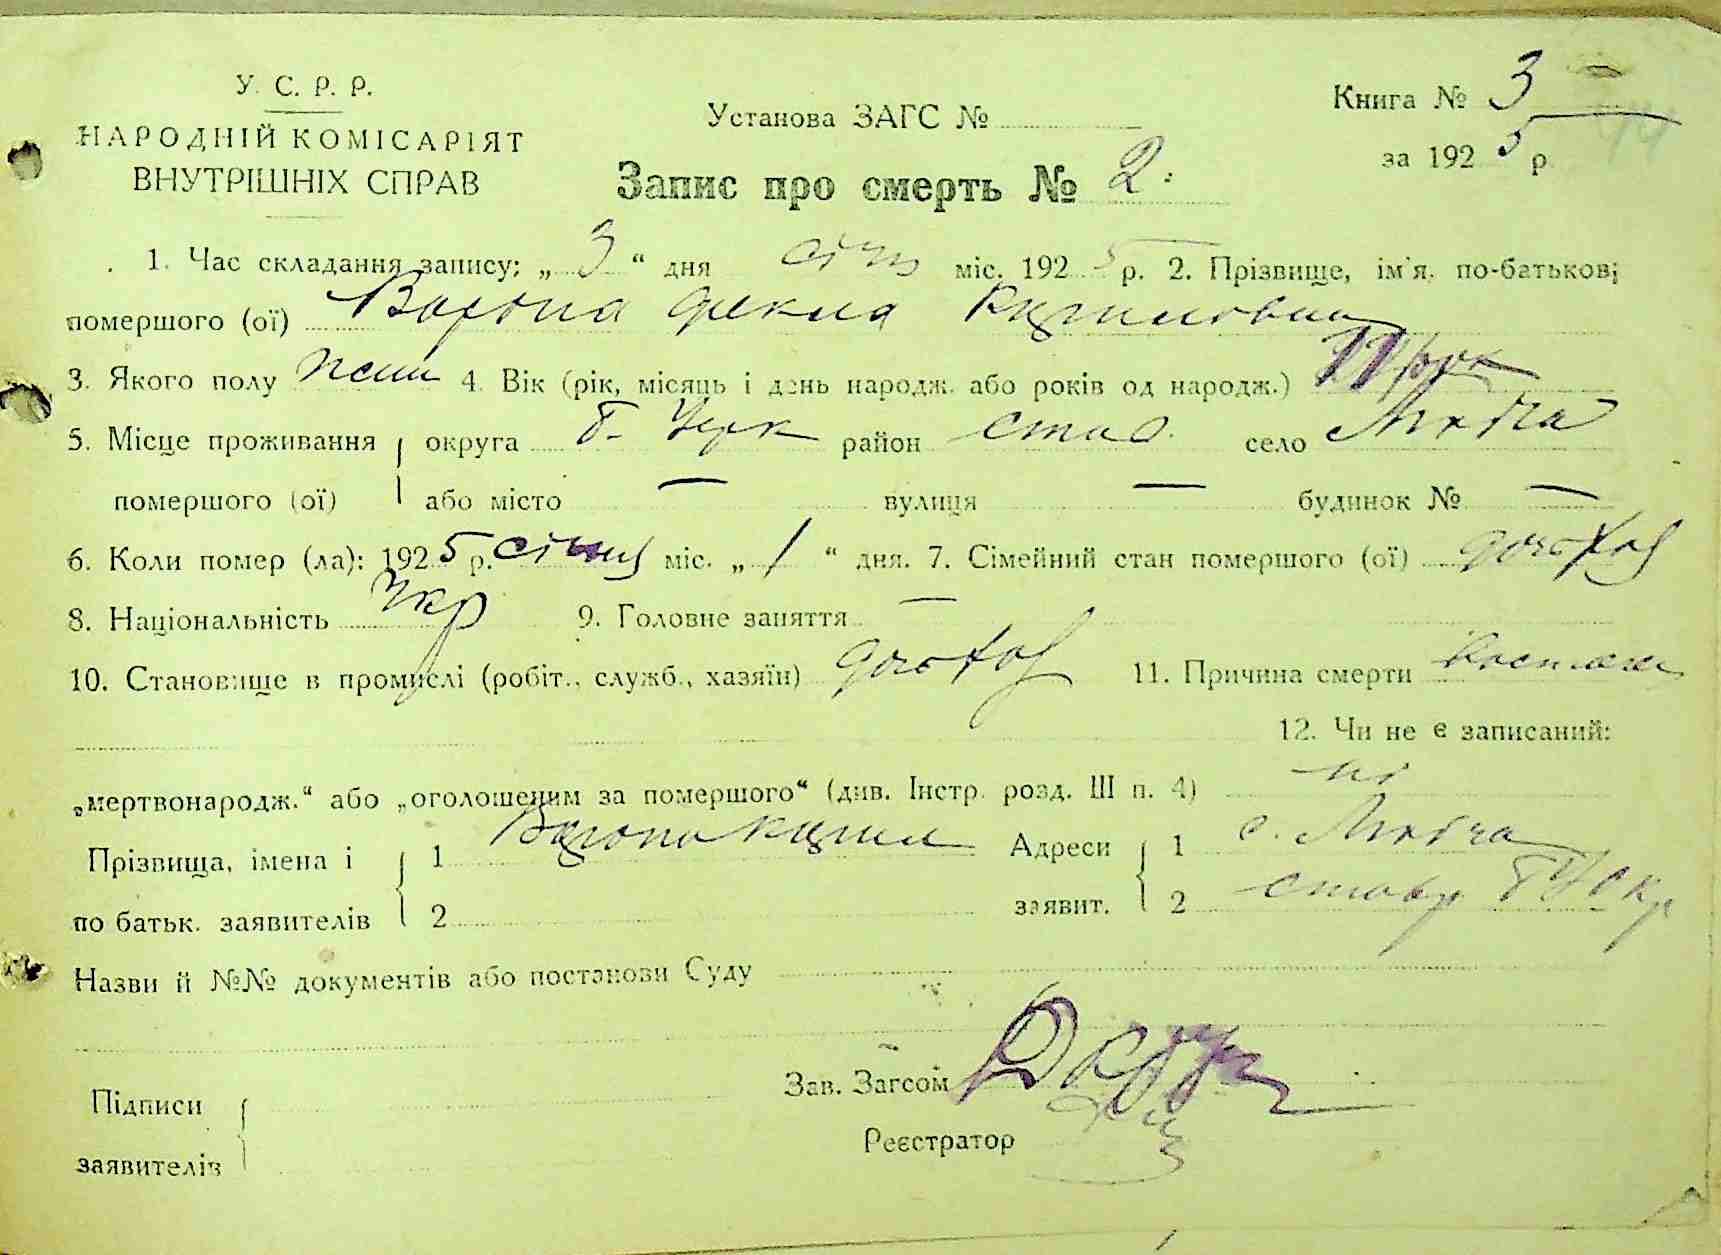 У. С. Р. Р.
НАРОДНІЙ КОМІСАРІЯТ
ВНУТРІШНІХ СПРАВ
Установа ЗАГС №
Книга № 3
за 1925 р
Запис про смерть № 2.
1. Час складання запису: „3“ дня січн міс. 1925 р. 2. Прізвище, ім'я, по-батькові
помершого (ої) Ворона Фекла
3. Якого полу жін 4. Вік (рік, місяць і день народж. або років од народж.) 11
5. Місце проживання округа Б. Церк район Став. село
помершого (ої) або місто — вулиця — будинок № —
6. Коли помер (ла): 1925 р. січня міс. „1“ дня. 7. Сімейний стан помершого (ої)
8. Національність Укр 9. Головне заняття —
10. Становище в промислі (робіт., служб., хазяїн) 11. Причина смерти
12. Чи не є записаний:
„мертвонародж.“ або „оголошеним за помершого“ (див. Інстр. розд. III п. 4) ні
Прізвища, імена і 1 Ворона Адреси 1 с.
по батьк. заявителів 2 заявит. 2
Назви й №№ документів або постанови Суду
Зав. Загсом
Підписи
Реєстратор
заявителів